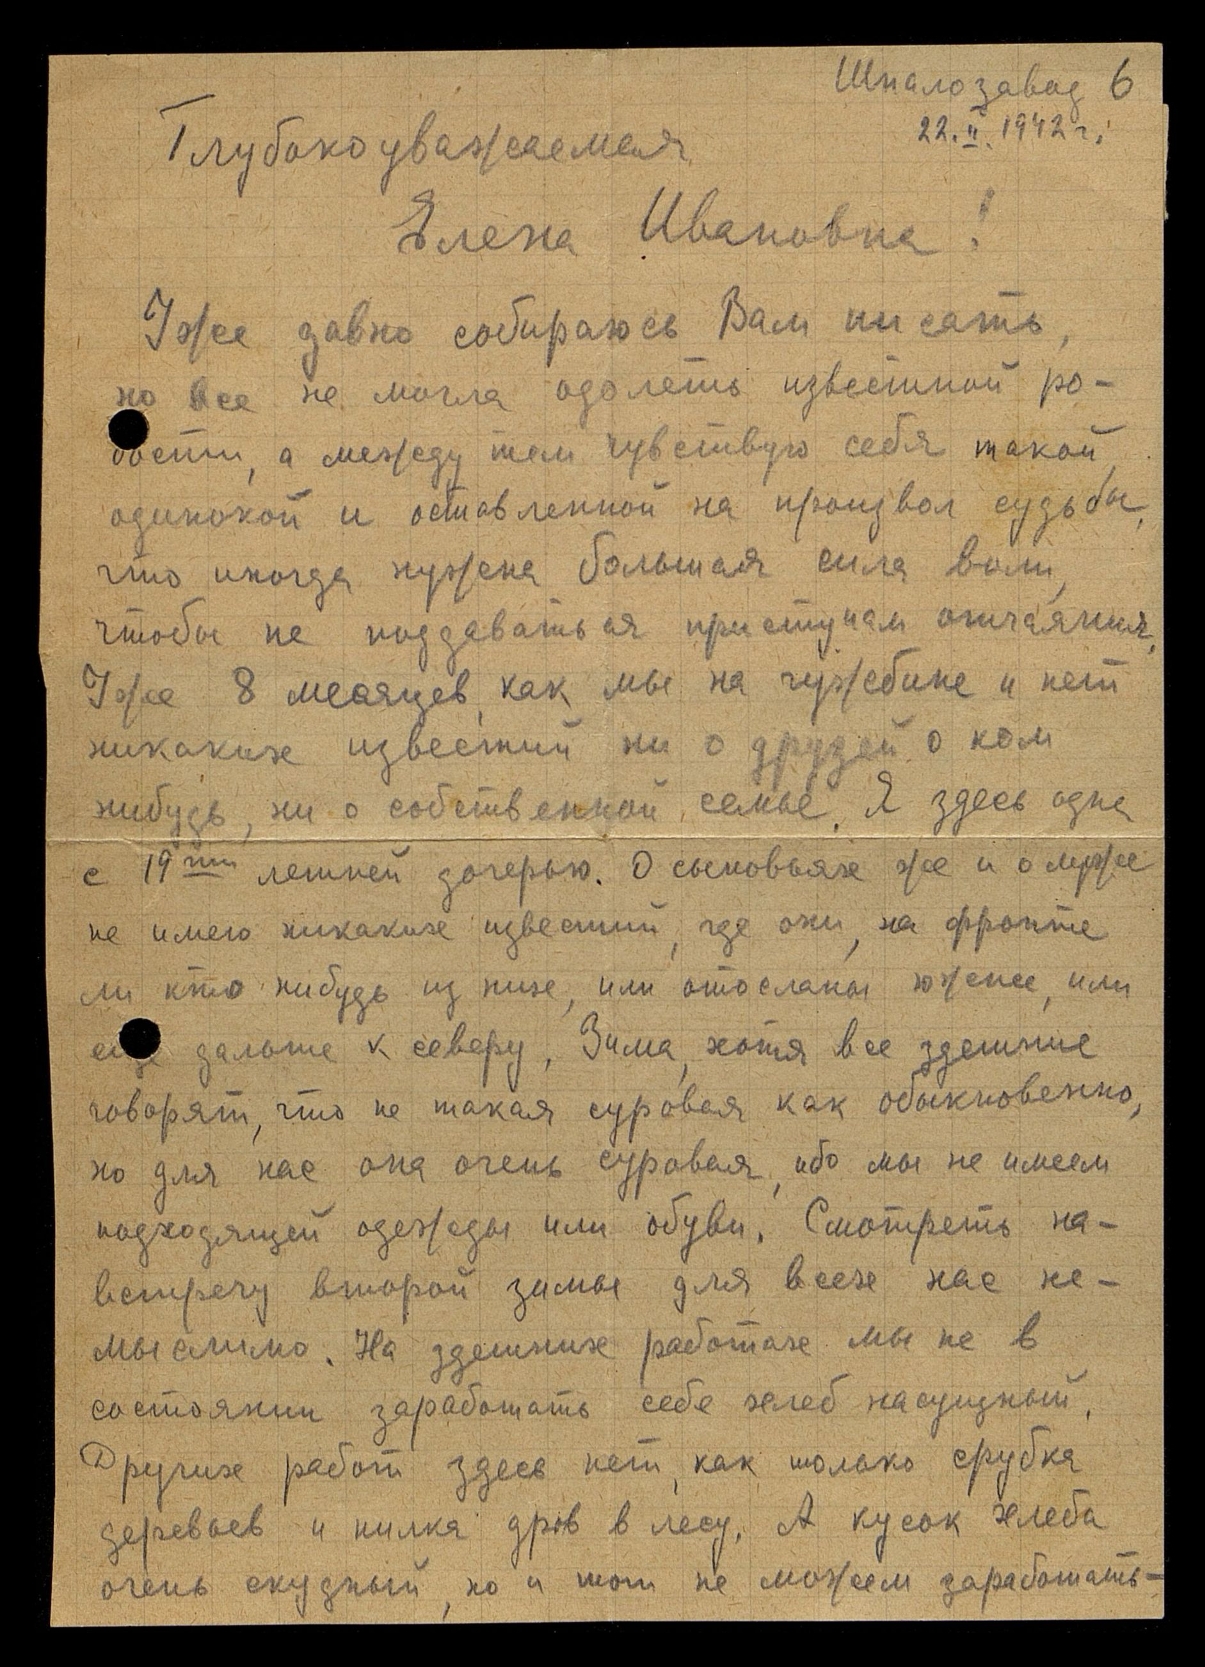 Шпалозавод 6
22.II.1942 г.
Глубокоуважаемая
Елена Ивановна!
Уже давно собираюсь Вам писать,
но все не могла одолеть известной ро-
бости, а между тем чувствую себя такой
одинокой и оставленной на произвол судьбы,
что иногда нужна большая сила воли,
чтобы не поддаваться приступам отчаяния.
Уже 8 месяцев, как мы на чужбине и нет
никаких известий ни о друзей о ком
нибудь, ни о собственной семье. Я здесь одна
с 19ти летней дочерью. О сыновьях же и о муже
не имею никаких известий, где они, на фронте
ли кто нибудь из них, или отосланы южнее, или
еще дальше к северу. Зима, хотя все здешние
говорят, что не такая суровая как обыкновенно,
но для нас она очень суровая, ибо мы не имеем
подходящей одежды или обуви. Смотреть на-
встречу второй зимы для всех нас не-
мыслимо. На здешних работах мы не в
состоянии заработать себе хлеб насущный.
Других работ здесь нет, как только срубка
деревьев и пилка дров в лесу. А кусок хлеба
очень скудный, но и тот не можем заработать-